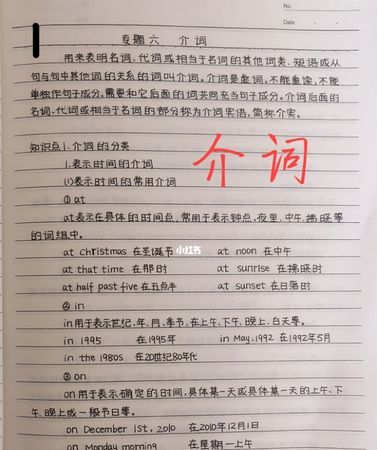 No.
Date
专题六 介词
用来表明名词、代词或相当于名词的其他词类、短语或从
句与句中其他词的关系的词叫介词。介词是虚词，不能重读，不能
单独作句子成分，需要和它后面的词共同充当句子成分。介词后面的
名词、代词或相当于名词的部分称为介词宾语，简称介宾。
知识点1.介词的分类
1.表示时间的介词
(1)表示时间的常用介词
介词
① at
at表示在具体的时间点，常用于表示钟点、夜里、中午、拂晓等
的词组中。
at christmas 在圣诞节 at noon 在中午
小红书
at that time 在那时 at sunrise 在拂晓时
at half past five 在五点半 at sunset 在日落时
② in
in 用于表示世纪、年、月、季节，在上午、下午、晚上、白天等。
in 1995 在1995年 in May,1992 在1992年5月
in the 1980s 在20世纪80年代
③ on
on 用于表示确定的时间，具体某一天或具体某一天的上午、下
午、晚上或一般节日等。
on December 1st, 2010 在2010年12月1日
on Monday morning 在星期一上午